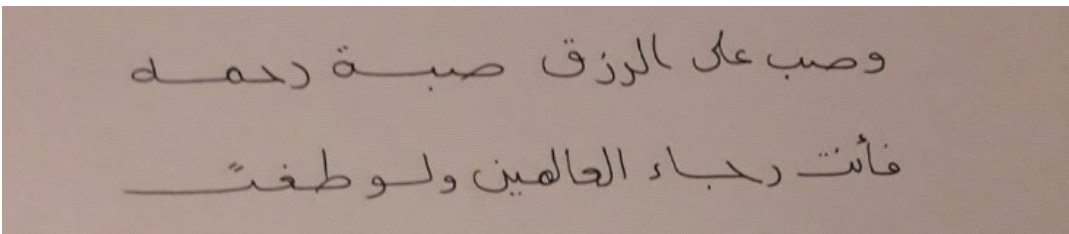 وصب على الرزق صبة رحمه
فأنت رجاء العالمين ولو طغت